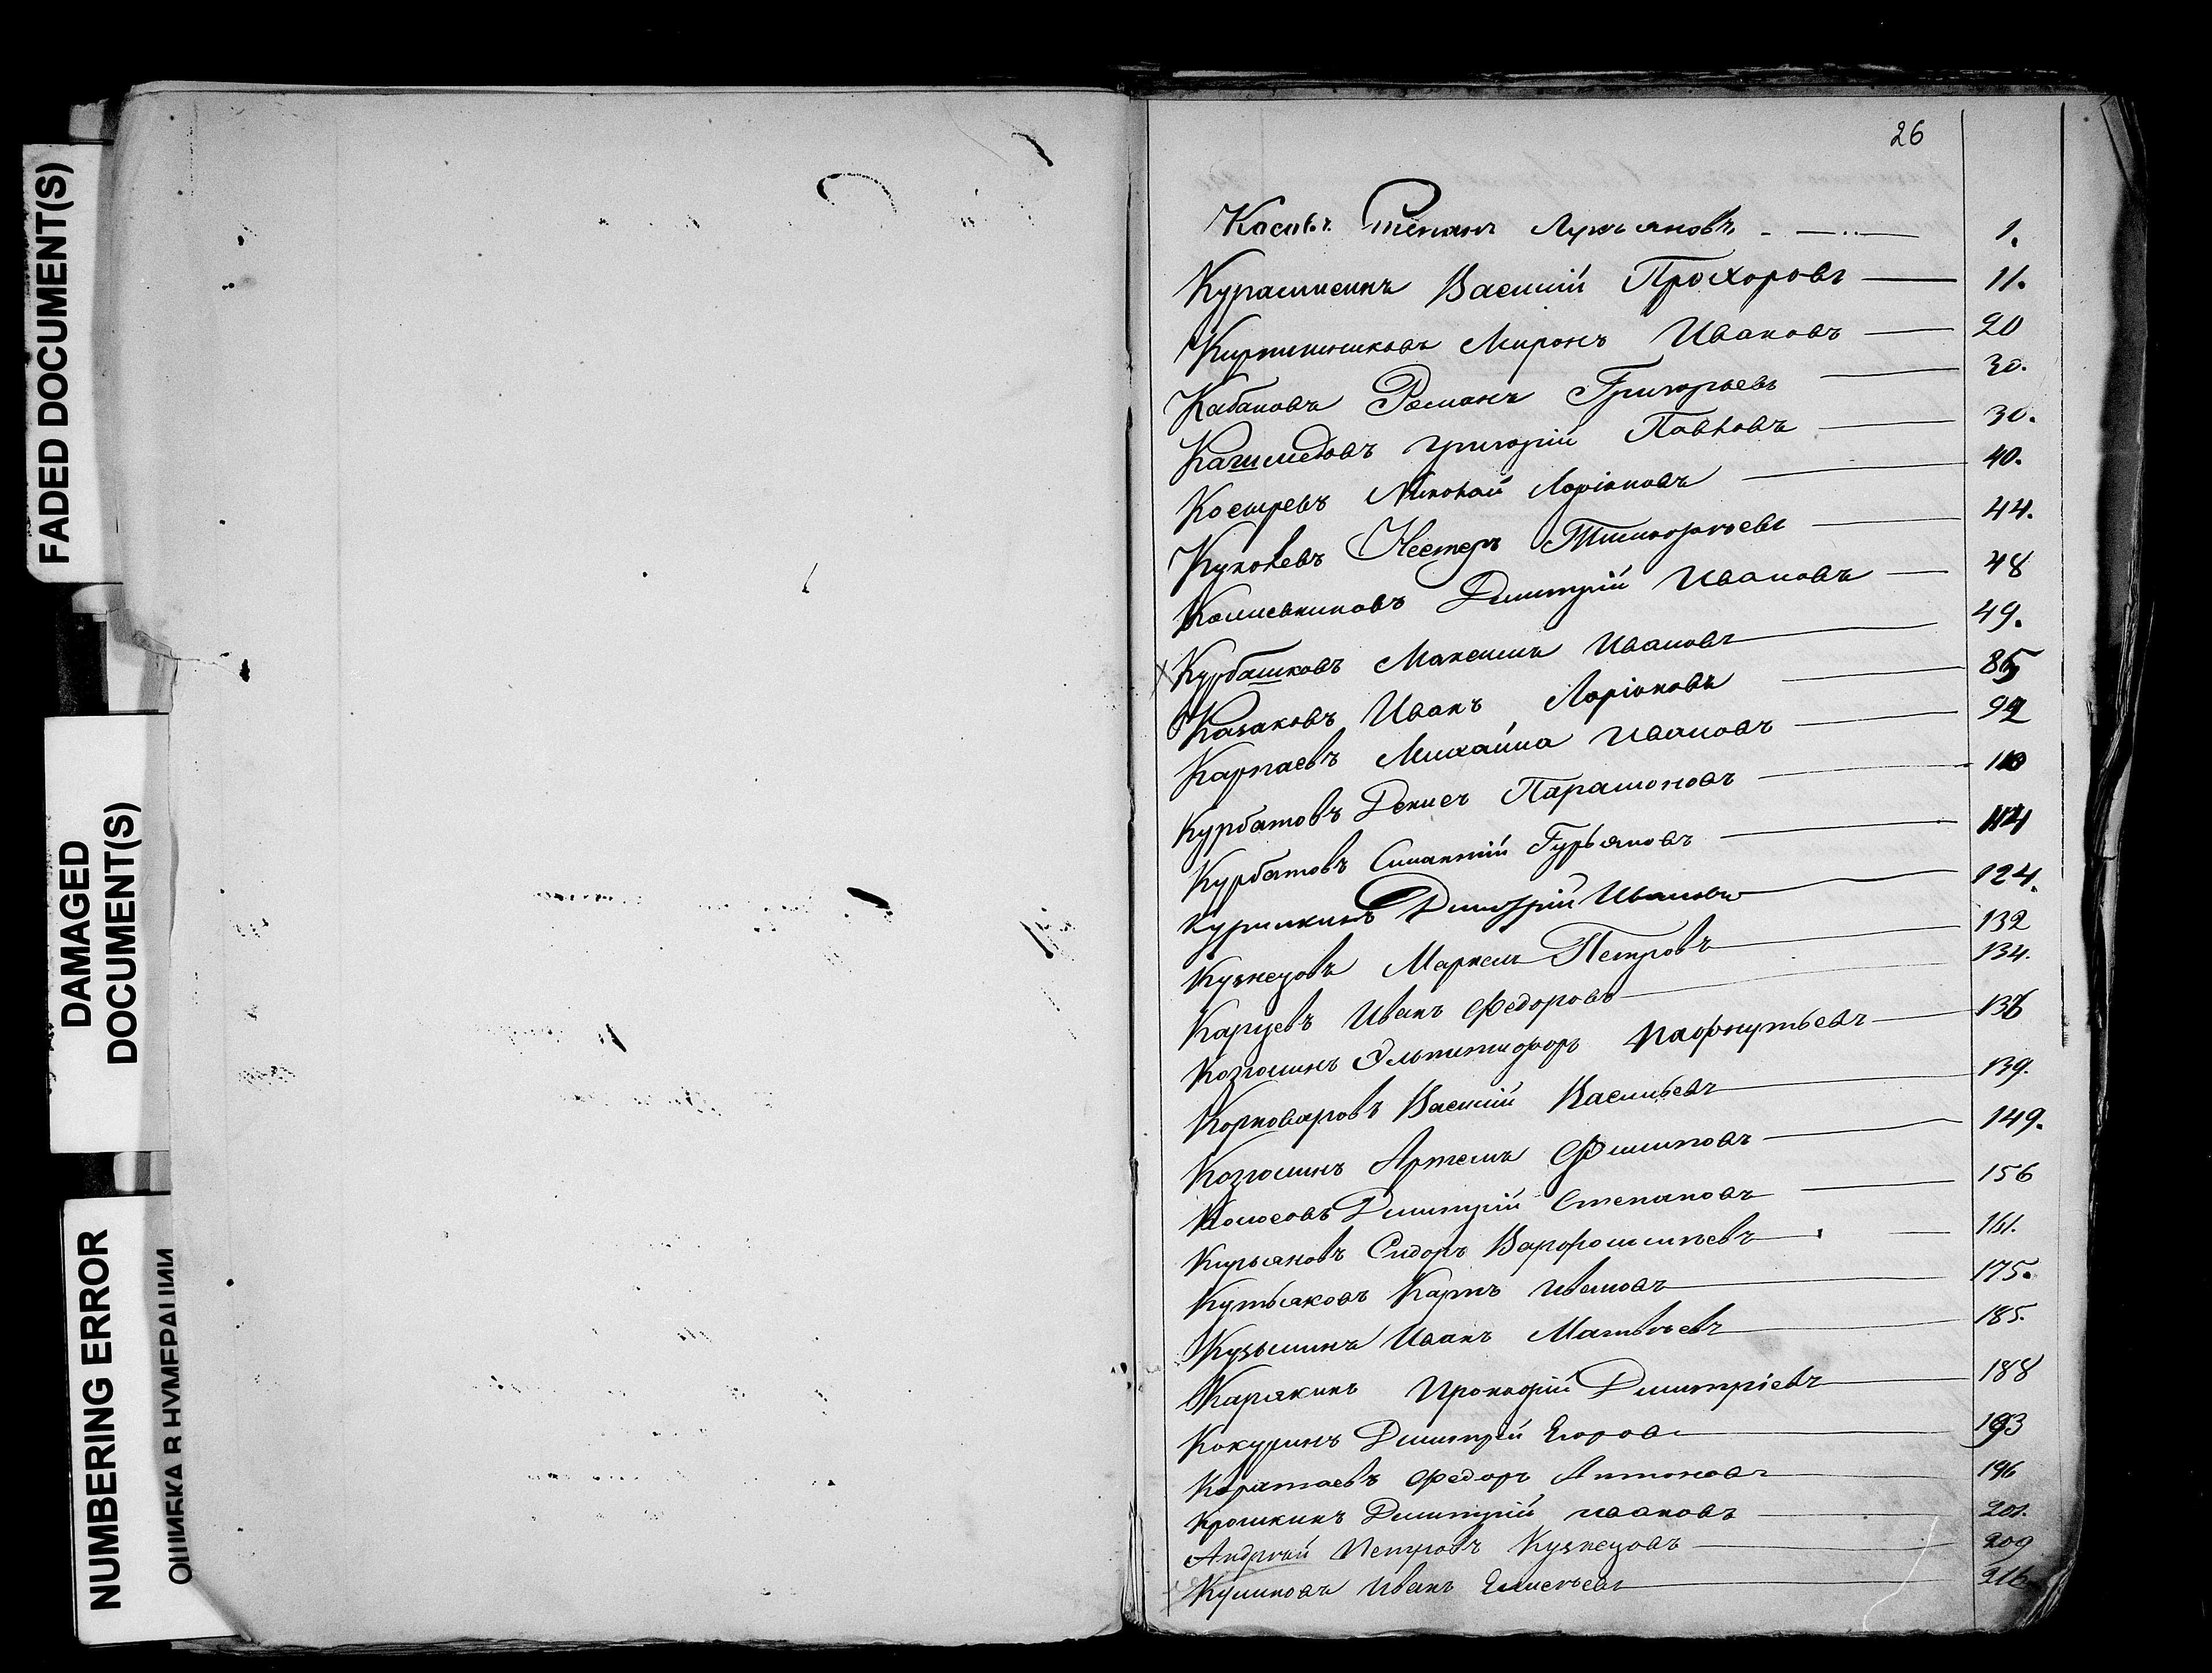 FADED DOCUMENT(S)
DAMAGED
DOCUMENT(S)
NUMBERING ERROR
ОШИБКА В НУМЕРАЦИИ
26
Косовъ Степанъ Лукьяновъ 1.
Василій Прохоровъ 11.
Кирпичниковъ Миронъ Ивановъ 20
Кабановъ Романъ Григорьевъ 30.
Григорій Павловъ 30.
Костревъ Николай Ларіоновъ 40.
Куколевъ Нестеръ Тимофѣевъ 44.
Дмитрій Ивановъ 48
Курбашковъ Максимъ Ивановъ 49.
Казаковъ Иванъ Ларіоновъ 85
Карпаевъ Михайла Ивановъ 92
Курбатовъ Денисъ Парамоновъ 110
Курбатовъ Гурьяновъ 114
Дмитрій Ивановъ 124.
Кузнецовъ Маркелъ Петровъ 132
Карцевъ Иванъ Федоровъ 134.
Козминъ Пафнутьевъ 136
Корноваровъ Василій Васильевъ 139.
Козминъ Артемъ Филиповъ 149.
Колосовъ Дмитрій Степановъ 156
Сидоръ Варфоломѣевъ 161.
Кутьяковъ Карпъ Ивановъ 175.
Кузьминъ Иванъ Матвѣевъ 185.
Карякинъ Прокофій Дмитріевъ 188
Кокуринъ Дмитрій Егоровъ 193
Каратаевъ Федоръ Антоновъ 196
Крошкинъ Дмитрій Ивановъ 201.
Андрей Петровъ Кузнецовъ 209
Куликовъ Иванъ Елисѣевъ 216